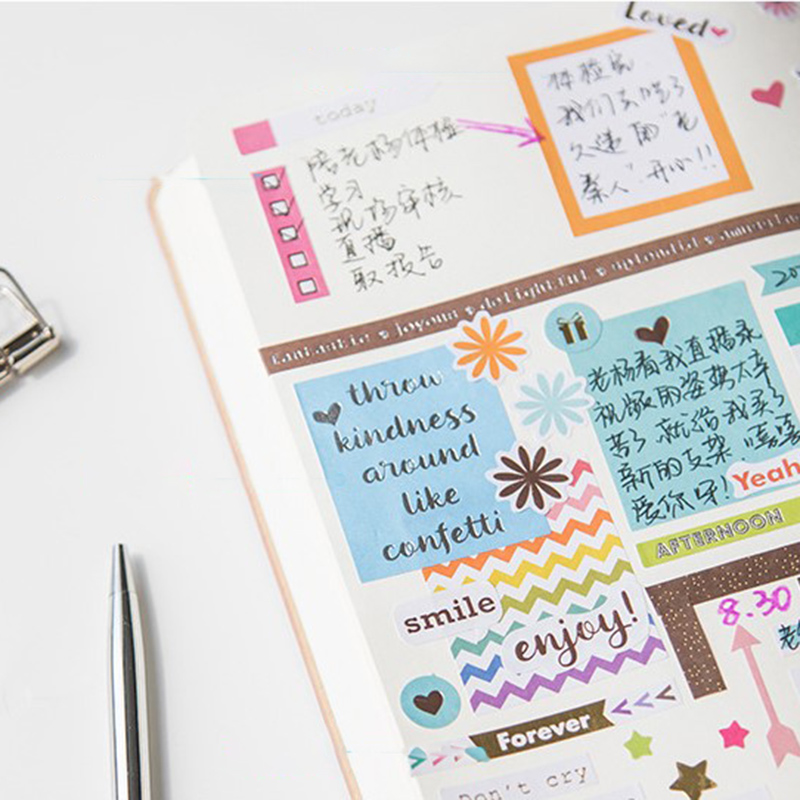 Loved
today
陪老杨体检
学习
现场审核
直播
取报告
体检完
我们去吃了
久违的“老
秦人”开心!!
fantastic joyous delightful splendid
throw
kindness
around
like
confetti
老杨看我直播录
视频的姿势太辛
苦了 就给我买了
新的支架
爱你呀!
Yeah
AFTERNOON
8.30
smile
enjoy!
Forever
Don't cry